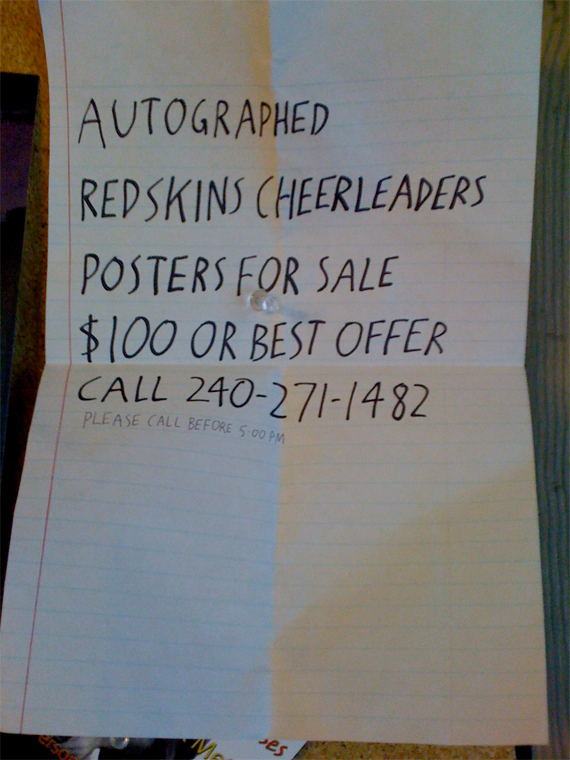 AUTOGRAPHED
REDSKINS CHEERLEADERS
POSTERS FOR SALE
$100 OR BEST OFFER
CALL 240-271-1482
PLEASE CALL BEFORE 5:00 PM